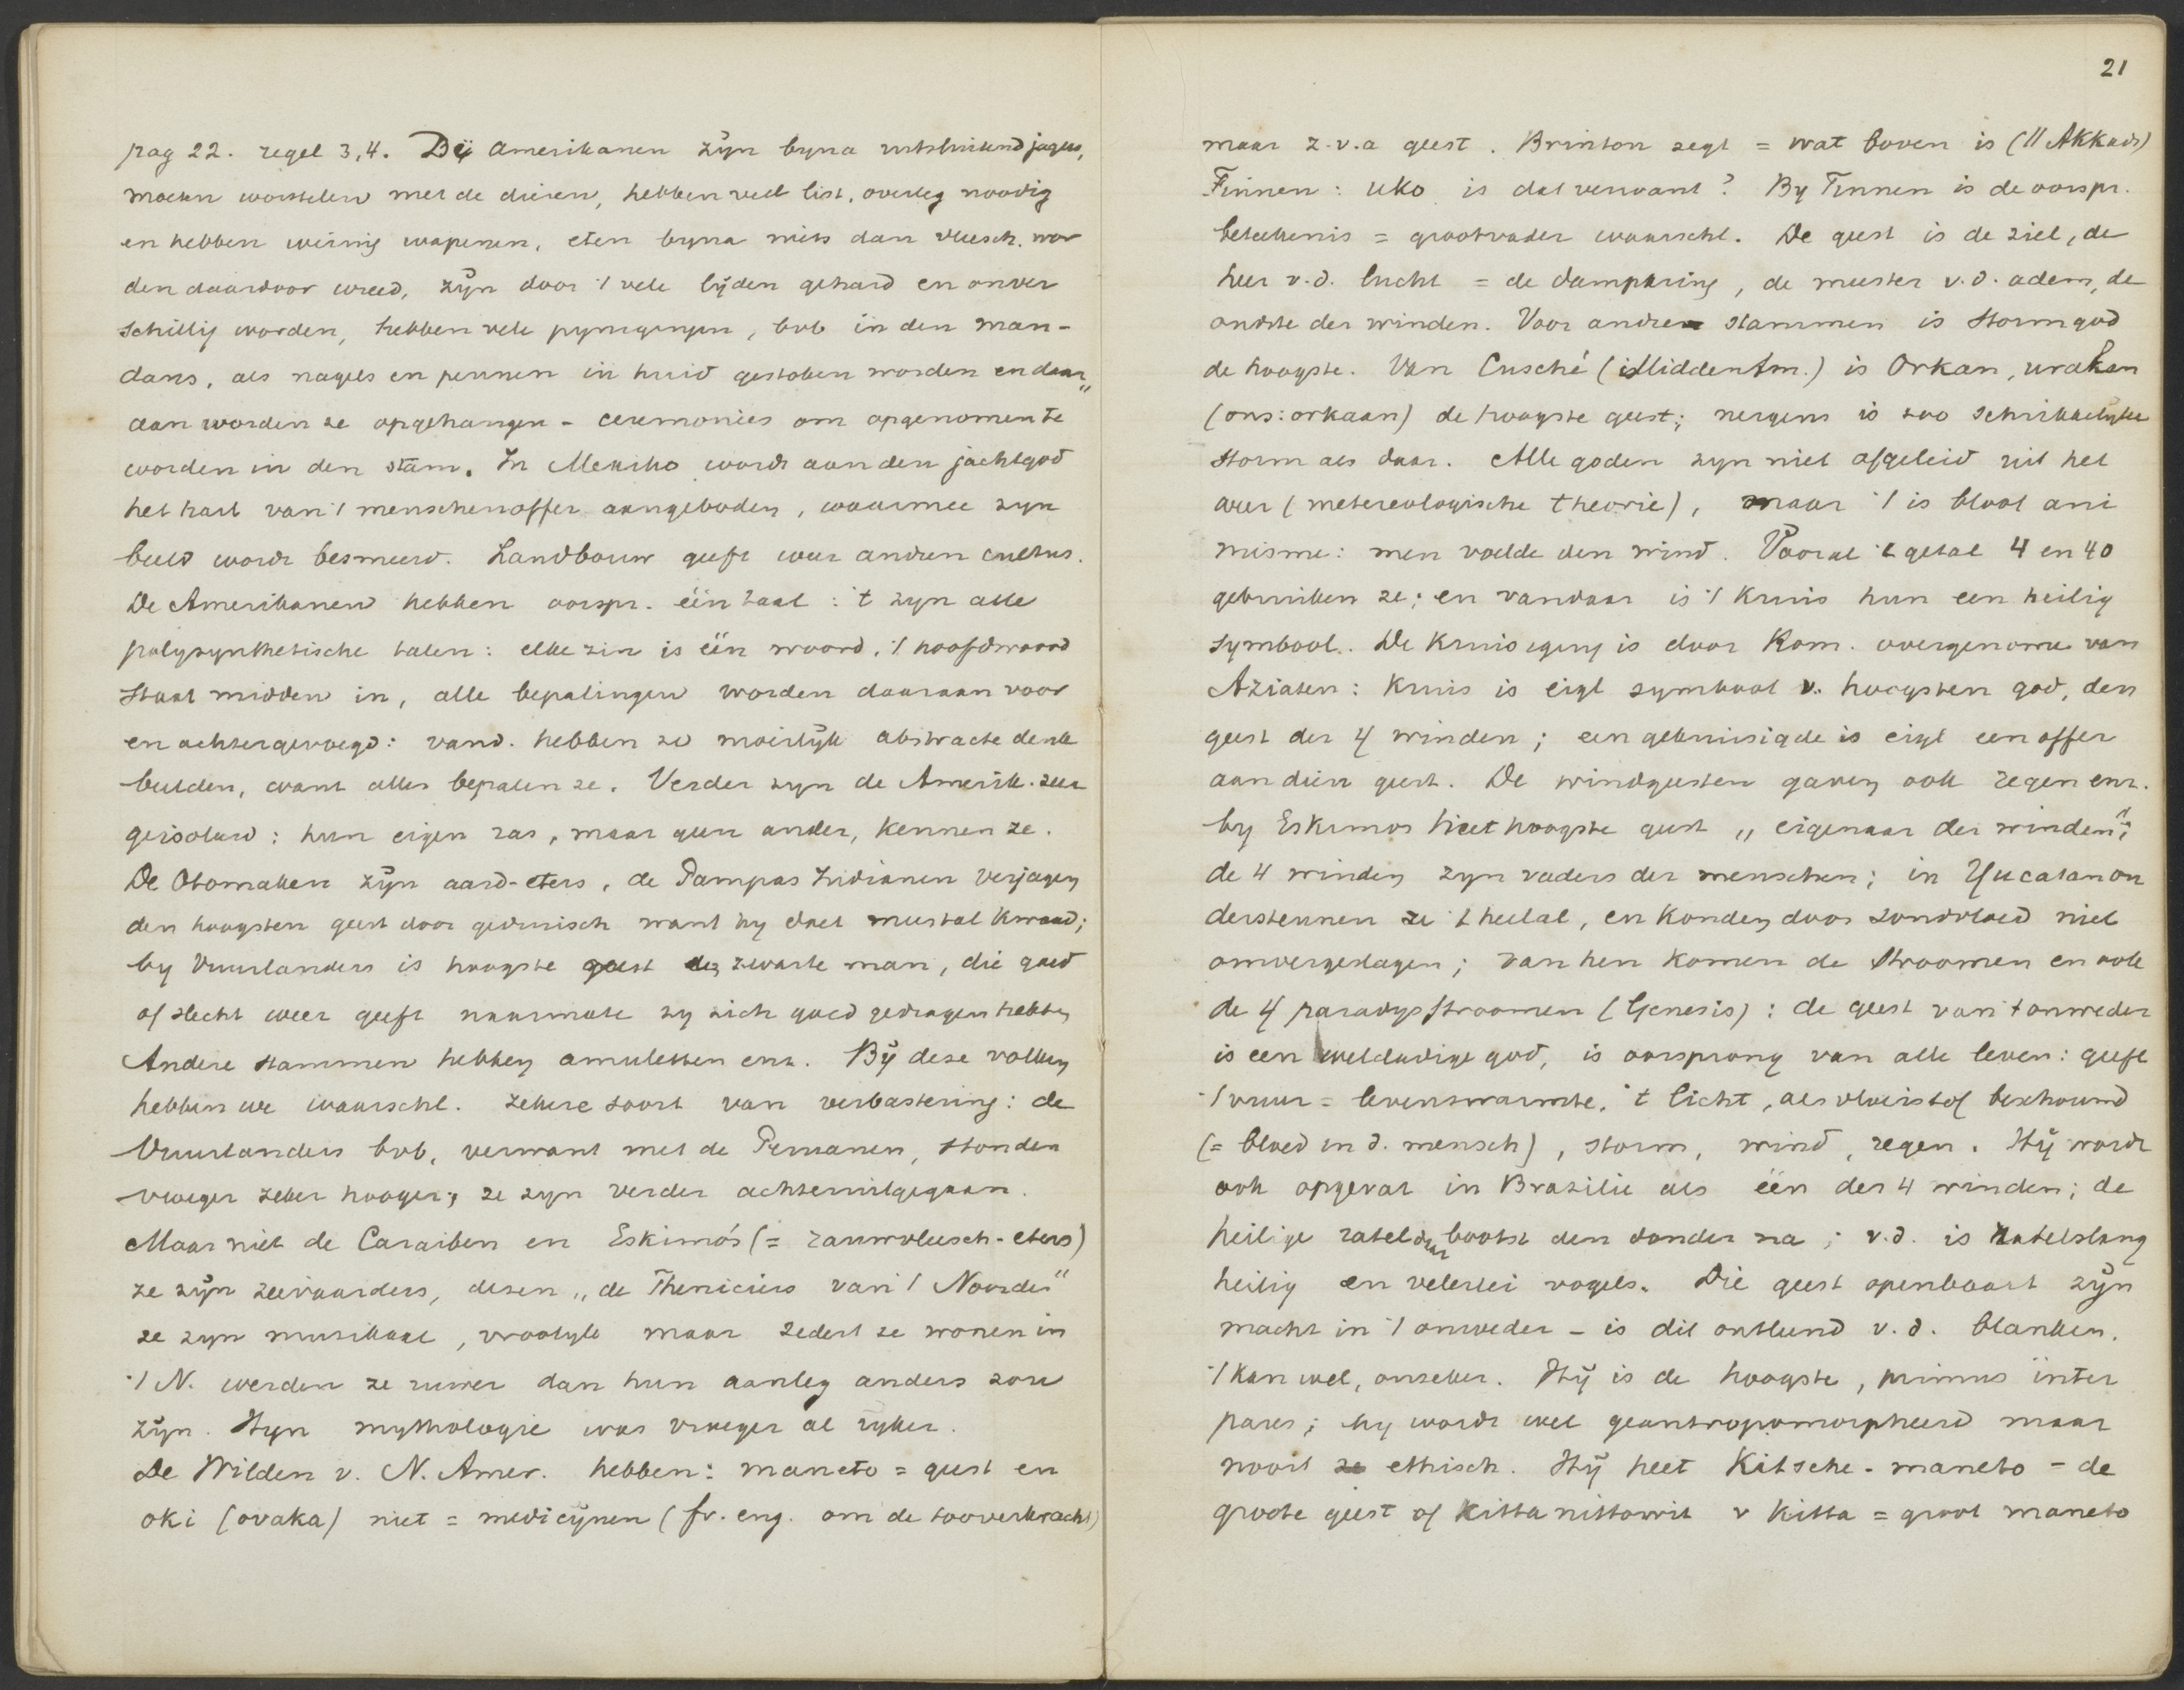 pag 22. regel 3,4. Die Amerikanen zijn byna uitsluitend jagers,
moeten worstelen met de dieren, hebben veel list, overleg noodig
en hebben weinig wapenen, eten byna niets dan vleesch, wor
den daardoor wreed, zijn door 't vele lijden gehard en onver
schillig worden, hebben vele pynigingen, bvb in den man-
dans, als nagels en pennen in huid gestoken worden en daar„
aan worden ze opgehangen - ceremonies om opgenomen te
worden in den stam. In Mexiko wordt aan den jachtgod
het hart van 't menschenoffer aangeboden, waarmee zyn
beeld wordt besmeerd. Landbouw geeft weer andren cultus.
De Amerikanen hebben oorspr. één taal: 't zyn alle
polysynthetische talen: elke zin is één woord, 't hoofdwoord
staat midden in, alle bepalingen worden daaraan voor
en achtergevoegd: vand. hebben ze moeilijk abstracte denk
beelden, want alles bepalen ze. Verder zyn de Amerik. zeer
geisoleerd: hun eigen ras, maar geen ander, kennen ze.
De Otomaken zijn aard-eters, de Pampas Indianen verjagen
den hoogsten geest door gedruisch want hy doet meestal kwaad;
by Vuurlanders is hoogste geest de zwarte man, die goed
of slecht weer geeft naarmate zy zich goed gedragen hebben
Andere stammen hebben amuletten enz. Bij deze volken
hebben we waarschl. zekere soort van verbastering: de
Vuurlanders bvb. verwant met de Peruanen, stonden
vroeger zeker hooger; ze zyn verder achteruitgegaan.
Maar niet de Caraiben en Eskimo's (= rauwvleesch-eters)
ze zijn zeevaarders, dezen „de Pheniciers van 't Noorden"
ze zyn muzikaal, vroolyk maar sedert ze wonen in
't N. werden ze ruwer dan hun aanleg anders zou
zijn. Hun mythologie was vroeger al ryker.
De Wilden v. N. Amer. hebben: maneto = geest en
oki (ovaka) niet = medicijnen (fr. eng. om de tooverkracht)
21
maar z.v.a geest. Brinton zegt = wat boven is (// Akkads)
Finnen: Uko is dat verwant? By Finnen is de oorspr.
beteekenis = grootvader waarschl. De geest is de ziel, de
heer v.d. lucht = de dampkring, de meester v.d. adem, de
oudste der winden. Voor andere stammen is stormgod
de hoogste. Van Cusché (i Midden Am.) is Orkan, urakan
(ons: orkaan) de hoogste geest; nergens is zoo schrikkelyke
storm als daar. Alle goden zyn niet afgeleid uit het
weer (metereologische theorie), maar 't is bloot ani
misme: men voelde den wind. Vooral 't getal 4 en 40
gebruiken ze; en vandaar is 't kruis hun een heilig
symbool. De kruisiging is door Rom. overgenome van
Aziaten: kruis is eigl symbool v. hoogsten god, den
geest der 4 winden; een gekruisigde is eigl een offer
aan dien geest. De windgeesten gaven ook regen enz.
by Eskimos heet hoogste geest „eigenaar der winden";
de 4 winden zyn vaders der menschen; in Yucatan on
dersteunen ze 't heelal, en konden door zondvloed niet
omvergeslagen; van hen komen de stroomen en ook
de 4 paradysstroomen (Genesis): de geest van 't onweder
is een weldadige god, is oorsprong van alle leven: geeft
't vuur = levenswarmte, 't licht, als vloeistof beschouwd
(= bloed in d. mensch), storm, wind, regen. Hij wordt
ook opgevat in Brazilie als één der 4 winden; de
heilige ratel daar bootst den donder na; v.d. is ratelslang
heilig en velerlei vogels. Die geest openbaart zijn
macht in 't onweder - is dit ontleend v.d. blanken.
't kan wel, onzeker. Hij is de hoogste, primus inter
pares; hy wordt wel geantropomorpheerd maar
nooit ethisch. Hij heet Kitsche-maneto = de
groote geest of Kittanittowit v Kitta = groot maneto